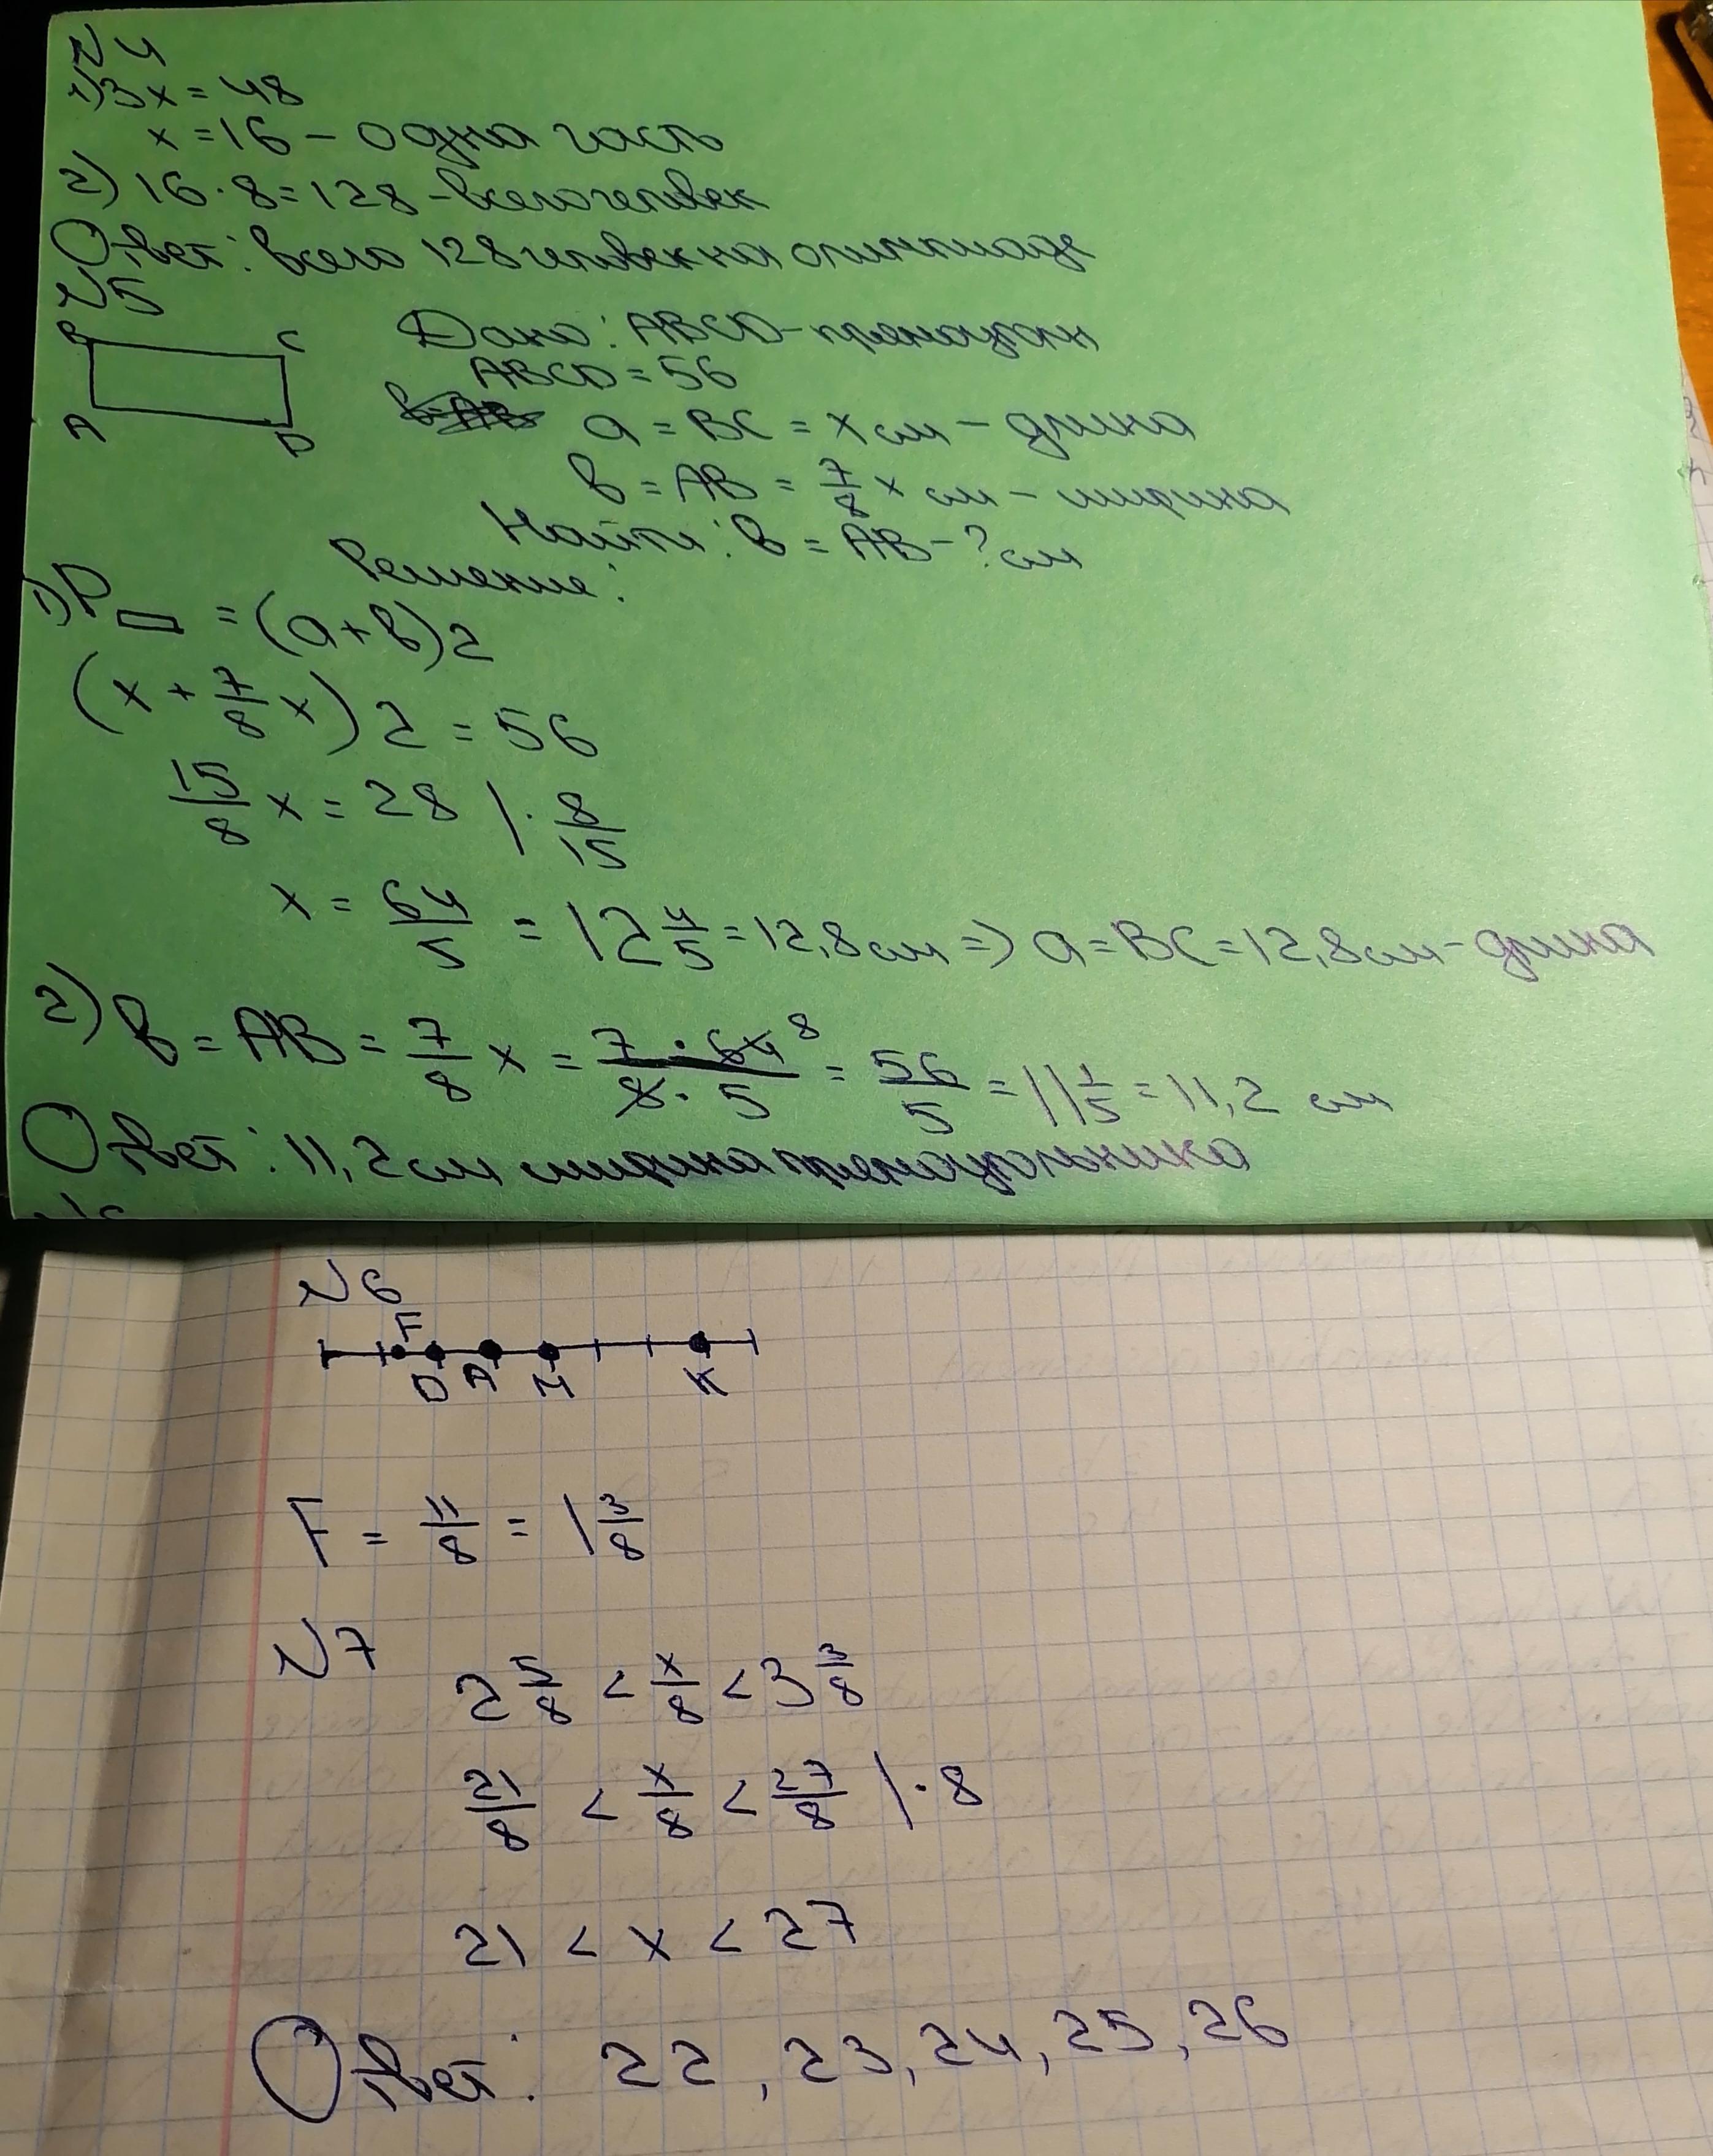 №4
1) 3x = 48
x = 16 - одна часть
2) 16 · 8 = 128 - всего человек
Ответ: всего 128 человек на олимпиаде
№5
B C
A D
Дано: ABCD - прямоугольн
ABCD = 56
a = BC = x см - длина
b = AB = 7/8 x см - ширина
Найти: b = AB - ? см
Решение:
1) P▭ = (a+b)2
(x + 7/8 x) 2 = 56
15/8 x = 28 | · 8/15
x = 64/5 = 12 4/5 = 12,8 см => a = BC = 12,8 см - длина
2) b = AB = 7/8 x = 7 · 64 8 / 8 · 5 = 56/5 = 11 1/5 = 11,2 см
Ответ: 11,2 см ширина прямоугольника
№6
F
D A M K
F = 11/8 = 1 3/8
№7
2 5/8 < x/8 < 3 3/8
21/8 < x/8 < 27/8 | · 8
21 < x < 27
Ответ: 22, 23, 24, 25, 26